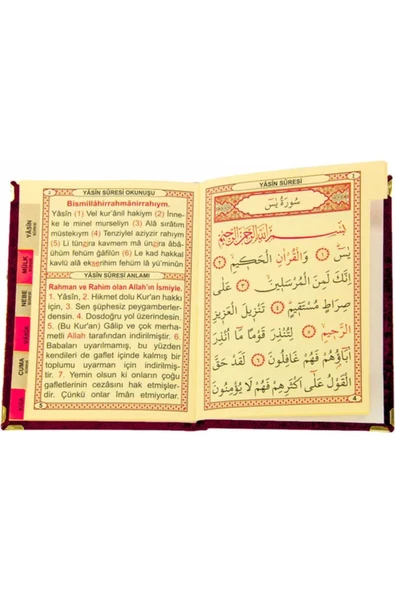 YÂSİN SÛRESİ OKUNUŞU
Bismillâhirrahmânirrahıym.
Yâsîn (1) Vel kur'ânil hakiym (2) İnne-
ke le minel murseliyn (3) Alâ sırâtım
müstekıym (4) Tenziylel aziyzir rahıym
(5) Li tünzira kavmem mâ ünzira âbâ-
ühüm fehüm ğâfilûn (6) Le kad hakkal
kavlü alâ ekserihim fehüm lâ yü'minûn
YÂSİN SÛRESİ ANLAMI
Rahman ve Rahim olan Allah'ın İsmiyle.
1. Yâsîn, 2. Hikmet dolu Kur'an hakkı
için, 3. Sen şüphesiz peygamberler-
densin. 4. Dosdoğru yol üzerindesin.
5. (Bu Kur'an) Gâlip ve çok merha-
metli Allah tarafından indirilmiştir. 6.
Babaları uyarılmamış, bu yüzden
kendileri de gaflet içinde kalmış bir
toplumu uyarman için indirilmiş-
tir. 7. Yemin olsun ki onların çoğu
gafletlerinin cezâsını hak etmişler-
dir. Çünkü onlar îman etmiyorlar.
5
YÂSİN
MÜLK
NEBE
CUMA
YÂSİN SÛRESİ
سُورَةُ يٰسٓ
بِسْمِ اللّٰهِ الرَّحْمٰنِ الرَّحِيمِ
يٰسٓ ﴿١﴾ وَالْقُرْاٰنِ الْحَكِيمِ ﴿٢﴾
اِنَّكَ لَمِنَ الْمُرْسَلِينَ ﴿٣﴾ عَلٰى
صِرَاطٍ مُسْتَقِيمٍ ﴿٤﴾ تَنْزِيلَ الْعَزِيزِ
الرَّحِيمِ ﴿٥﴾ لِتُنْذِرَ قَوْمًا مَٓا اُنْذِرَ
اٰبَٓاؤُ۬هُمْ فَهُمْ غَافِلُونَ ﴿٦﴾ لَقَدْ حَقَّ
الْقَوْلُ عَلٰٓى اَكْثَرِهِمْ فَهُمْ لَا يُؤْمِنُونَ
4